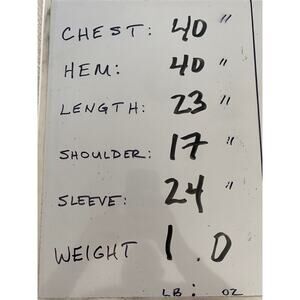 CHEST: 40"
HEM: 40"
LENGTH: 23"
SHOULDER: 17"
SLEEVE: 24"
WEIGHT 1.0
LB: OZ